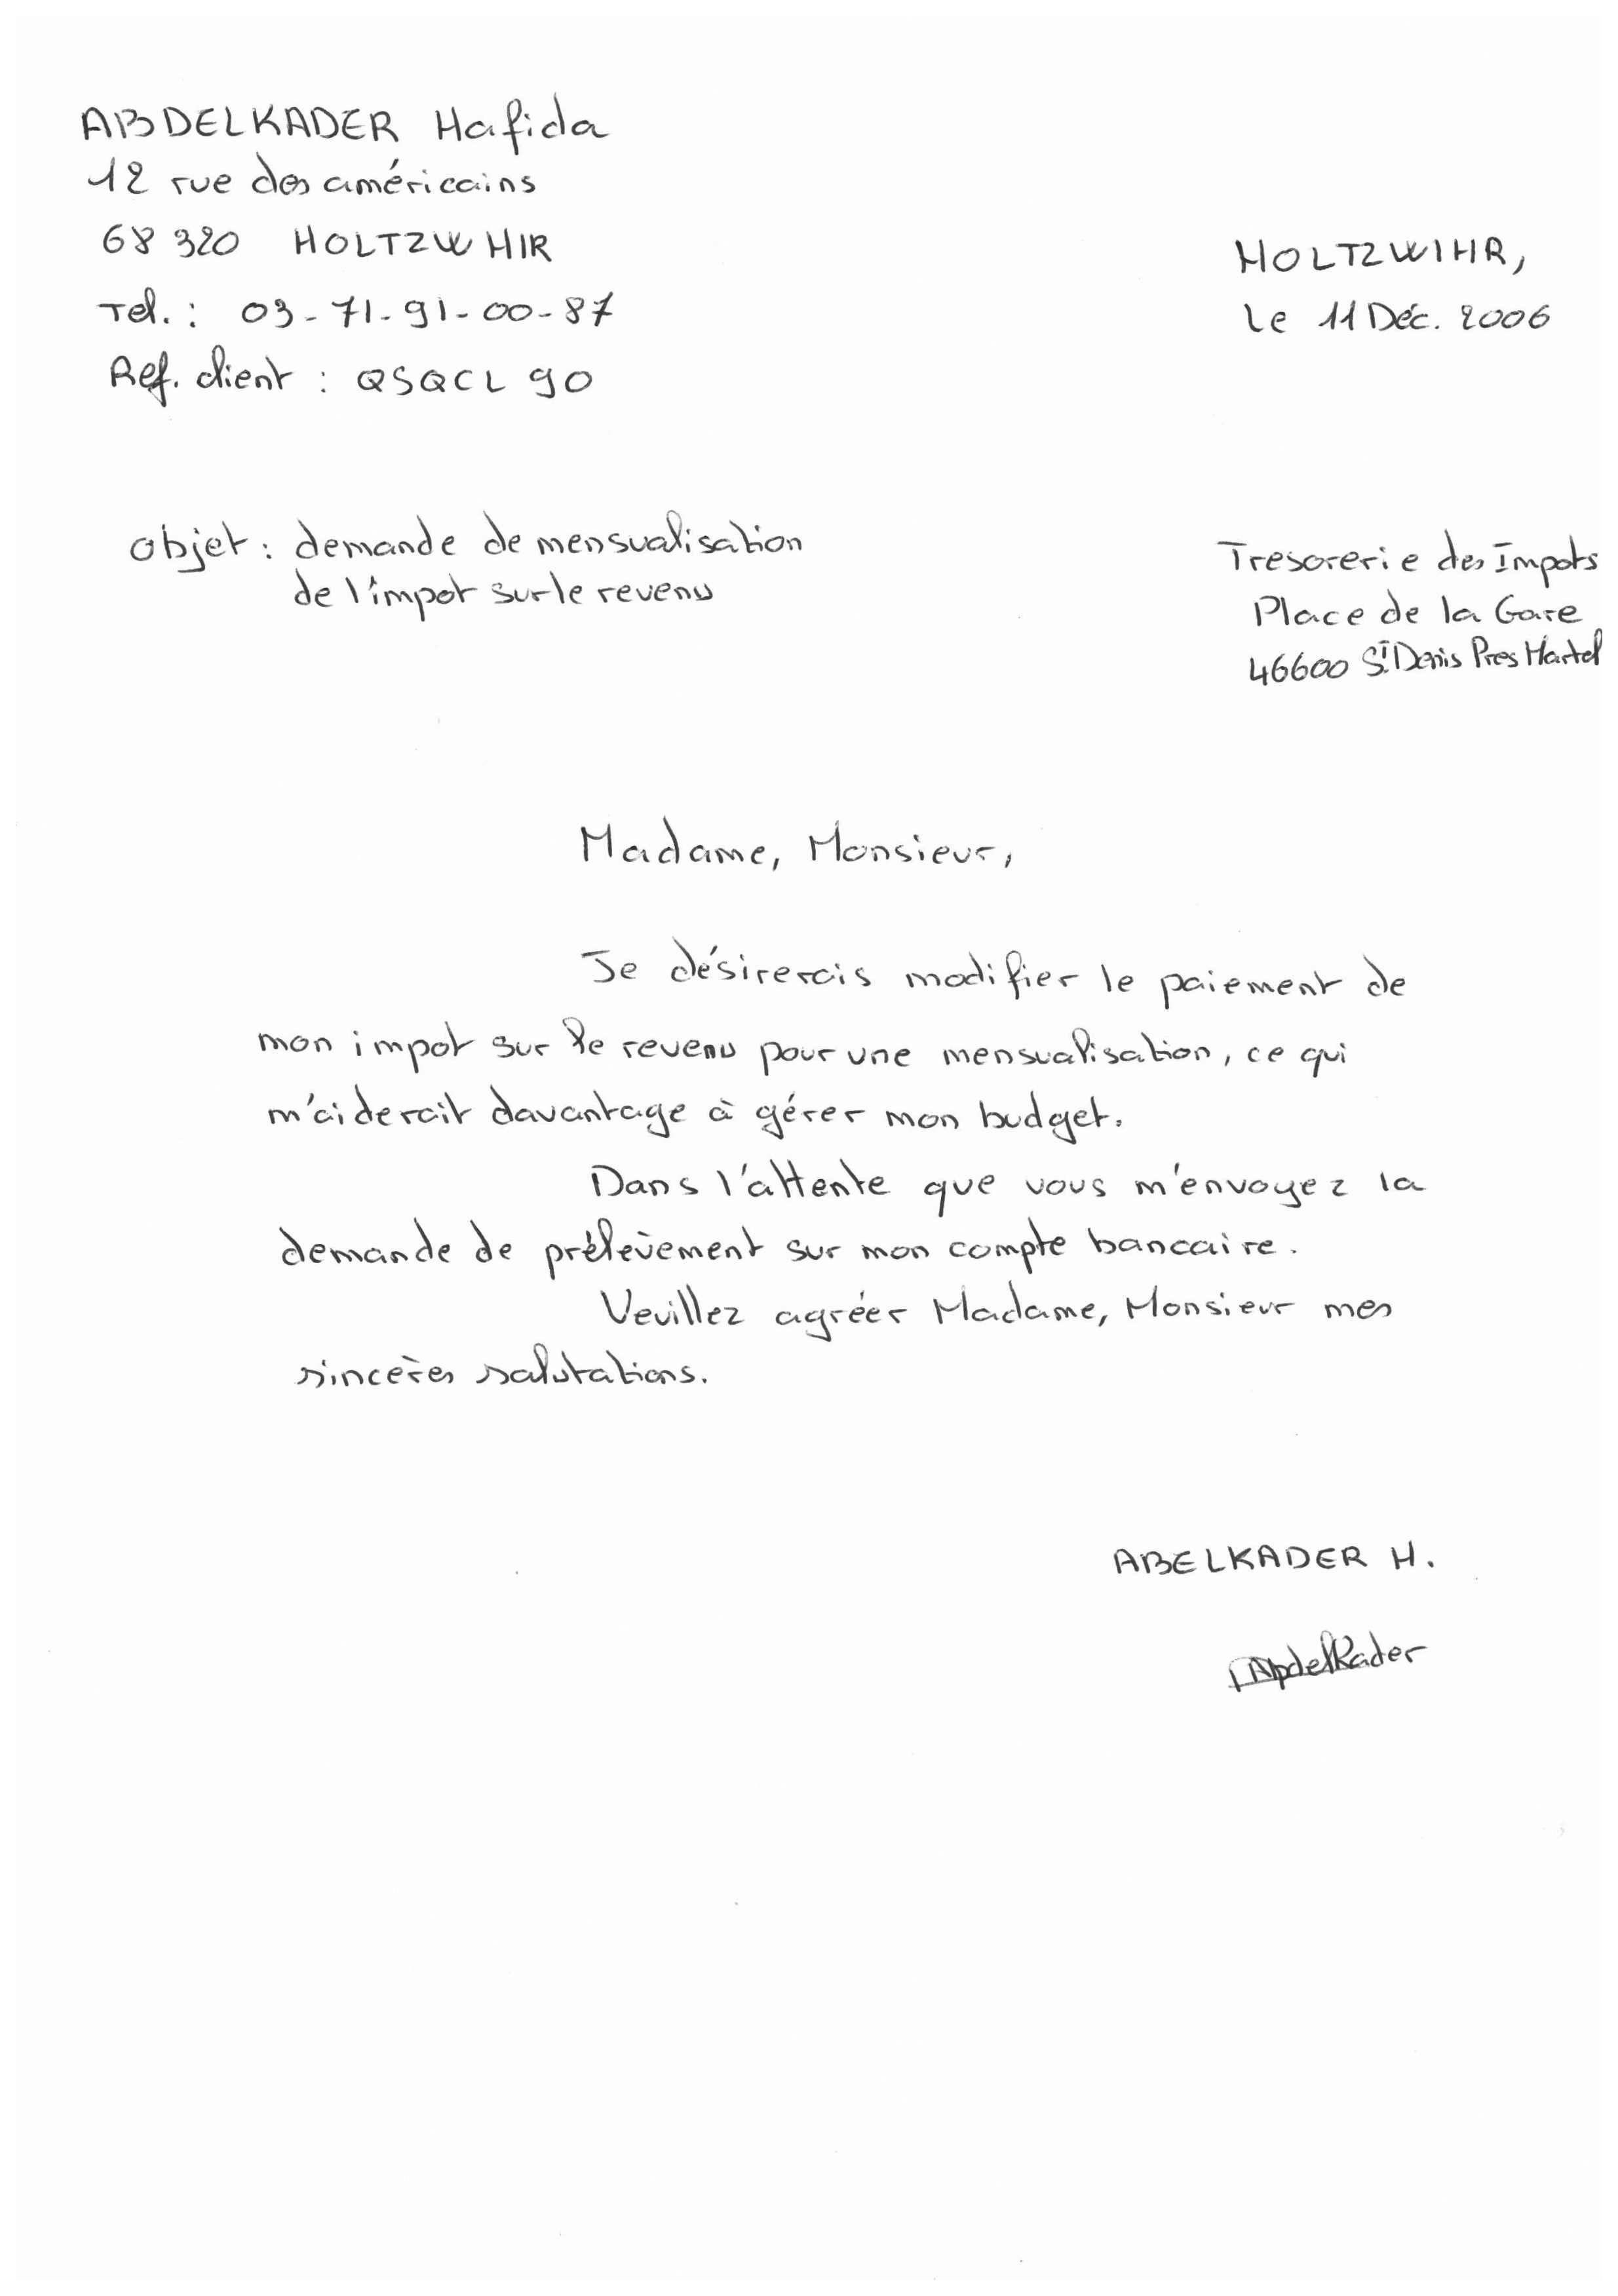 ABDELKADER Hafida
12 rue des américains
68 320 HOLTZWHIR
Tel. : 03-71-91-00-87
Ref. client : QSQCL 90
HOLTZWIHR,
Le 11 Déc. 2006
Objet : demande de mensualisation
de l'impot sur le revenu
Tresorerie des Impots
Place de la Gare
46600 St Denis Pres Martel
Madame, Monsieur,
Je désirerais modifier le paiement de
mon impot sur le revenu pour une mensualisation, ce qui
m'aiderait davantage à gérer mon budget.
Dans l'attente que vous m'envoyez la
demande de prélèvement sur mon compte bancaire.
Veuillez agréer Madame, Monsieur mes
sincères salutations.
ABELKADER H.
Abdelkader